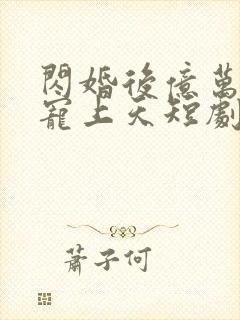 閃婚後億萬
寵上天短劇
蕭子何